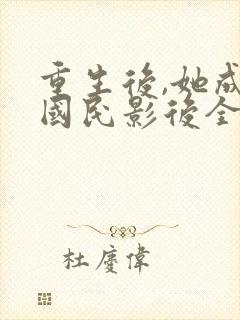 重生後,她成
國民影後全
杜慶偉